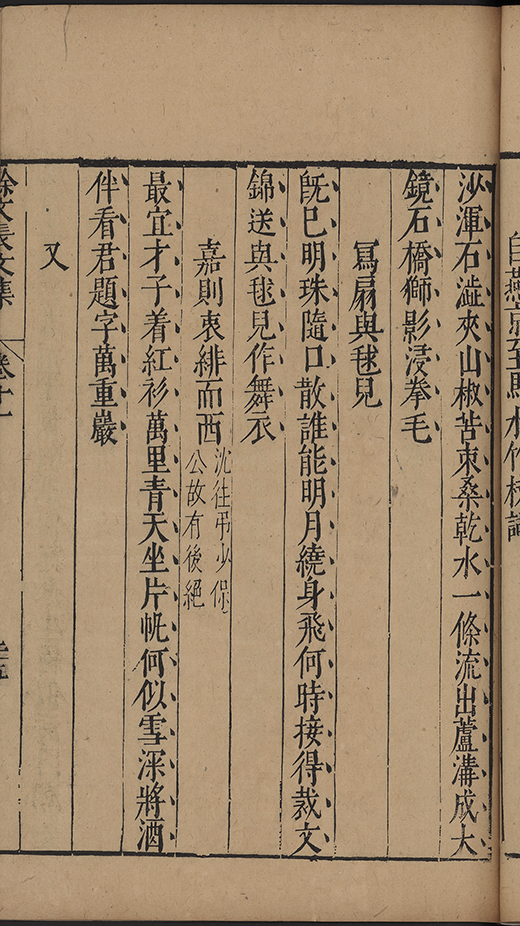 沙渾石澁夾山椒苦束桑乾水一條流出蘆溝成大
鏡石橋獅影浸拳毛
寫扇與毬兒
旣已明珠隨口散誰能明月繞身飛何時接得裁文
錦送與毬兒作舞衣
嘉則衷緋而西
沈往弔少保
公故有後絕
最宜才子着紅衫萬里青天坐片帆何似雪深將酒
伴看君題字萬重巖
又
徐文長文集
卷十一